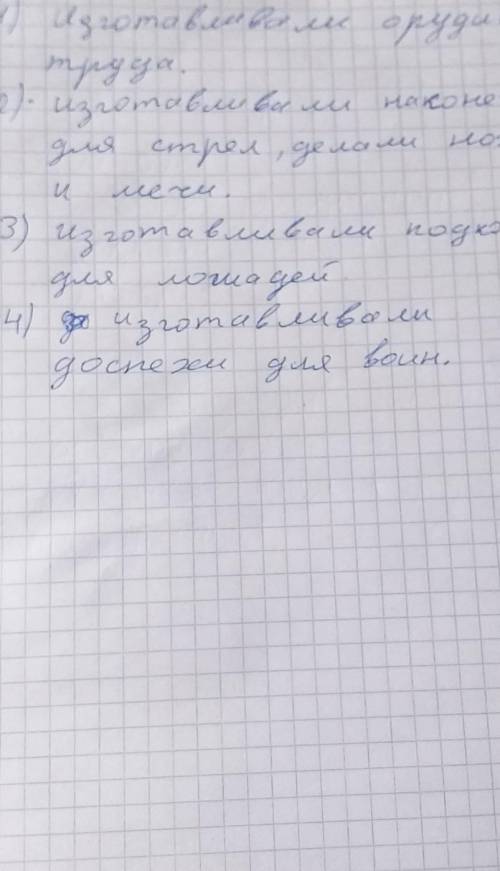 1) Изготавливали оруди
труда.
2). изготавливали наконе
для стрел, делали но
и мечи.
3) изготавливали подко
для лошадей.
4) изготавливали
доспехи для воин.